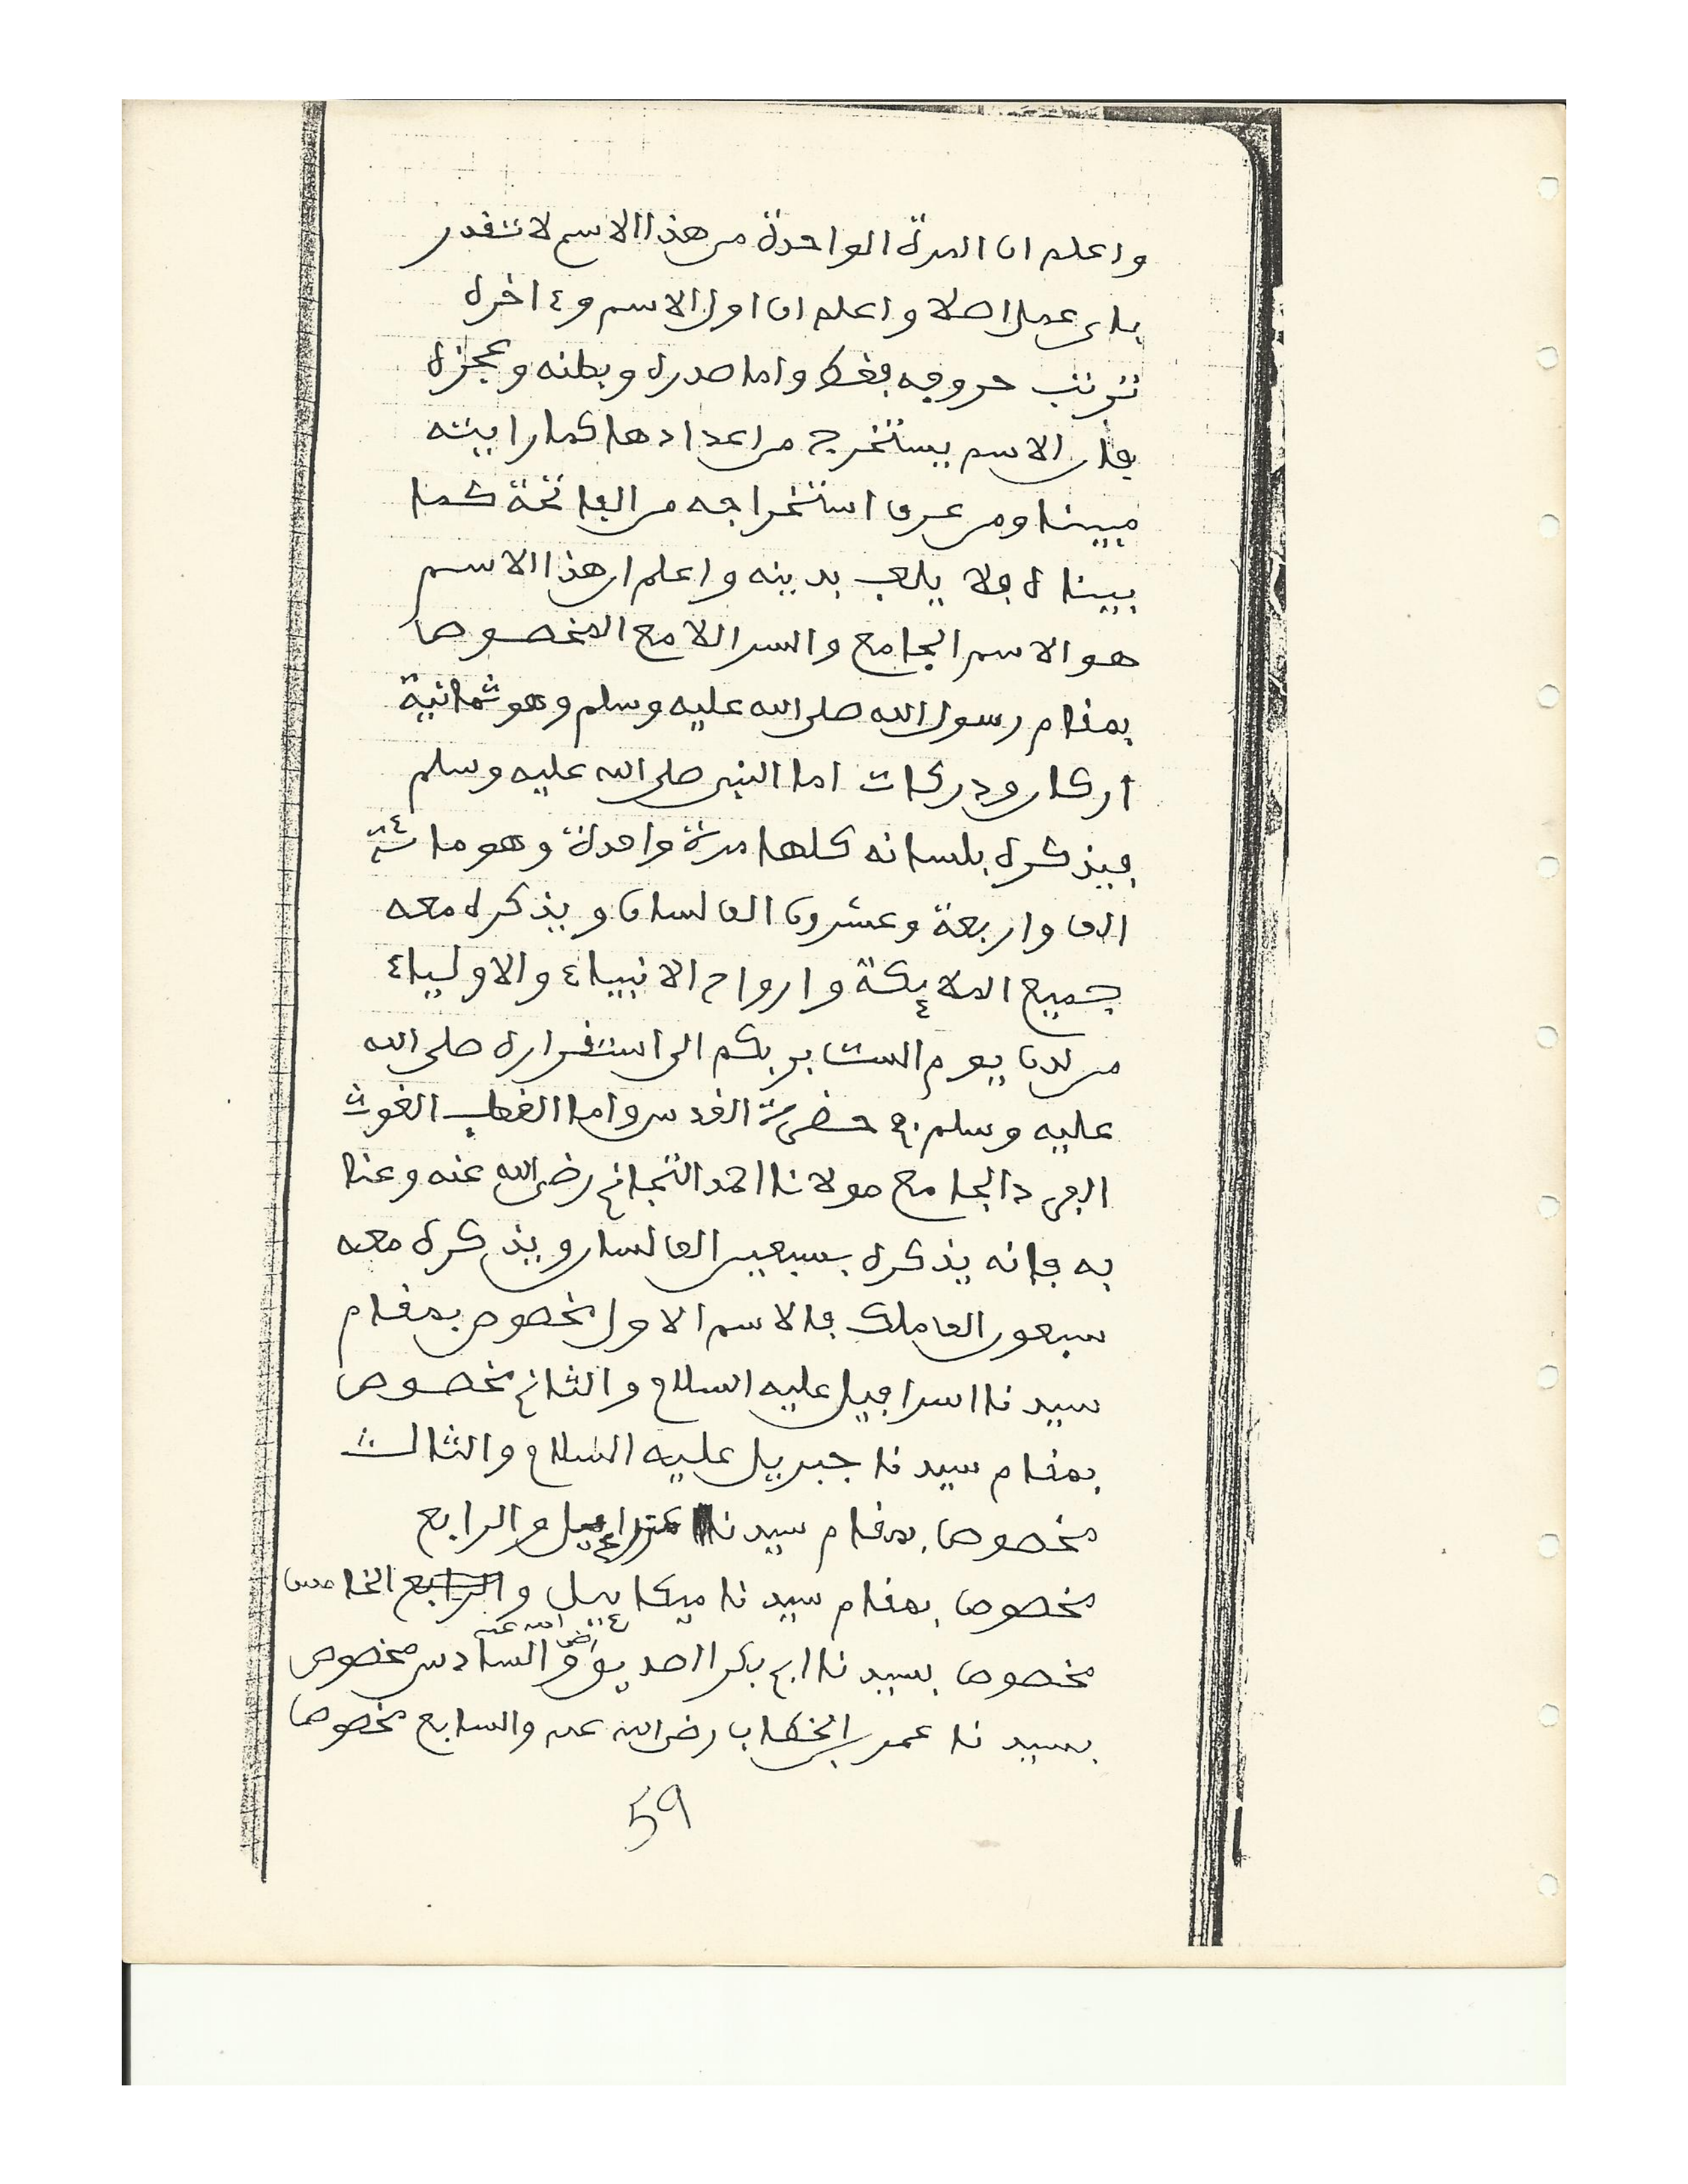 واعلم ان المرة الواحدة من هذا الاسم لا تقدر
باى عمل اصلا واعلم ان اول الاسم وءاخره
ترتب حروفه فقط واما صدره وبطنه وعجزه
فان الاسم يستخرج من اعدادها كما رايته
مبينا ومن عرف استخراجه من الفاتحة كما
بيناه فلا يلعب بدينه واعلم ان هذا الاسم
هو الاسم الجامع والسر اللامع المخصوص
بمقام رسول الله صلى الله عليه وسلم وهو ثمانية
اركان ودركات اما النبى صلى الله عليه وسلم
فيذكره بلسانه كلها مرة واحدة وهو مائة
الف واربعة وعشرون الف لسان ويذكره معه
جميع الملائكة وارواح الانبياء والاولياء
من لدن يوم الست بربكم الى استقراره صلى الله
عليه وسلم في حضرة القدس واما القطب الغوث
الفرد الجامع مولانا احمد التجاني رضى الله عنه وعنا
به فانه يذكره بسبعين الف لسان ويذكره معه
سبعون الف ملك فالاسم الاول مخصوص بمقام
سيدنا اسرافيل عليه السلام والثاني مخصوص
بمقام سيدنا جبريل عليه السلام والثالث
مخصوص بمقام سيدنا عزرائيل والرابع
مخصوص بمقام سيدنا ميكائيل والرابع الخامس
مخصوص بسيدنا ابي بكر الصديق رضى الله عنه والسادس مخصوص
بسيدنا عمر بن الخطاب رضى الله عنه والسابع مخصوص
59